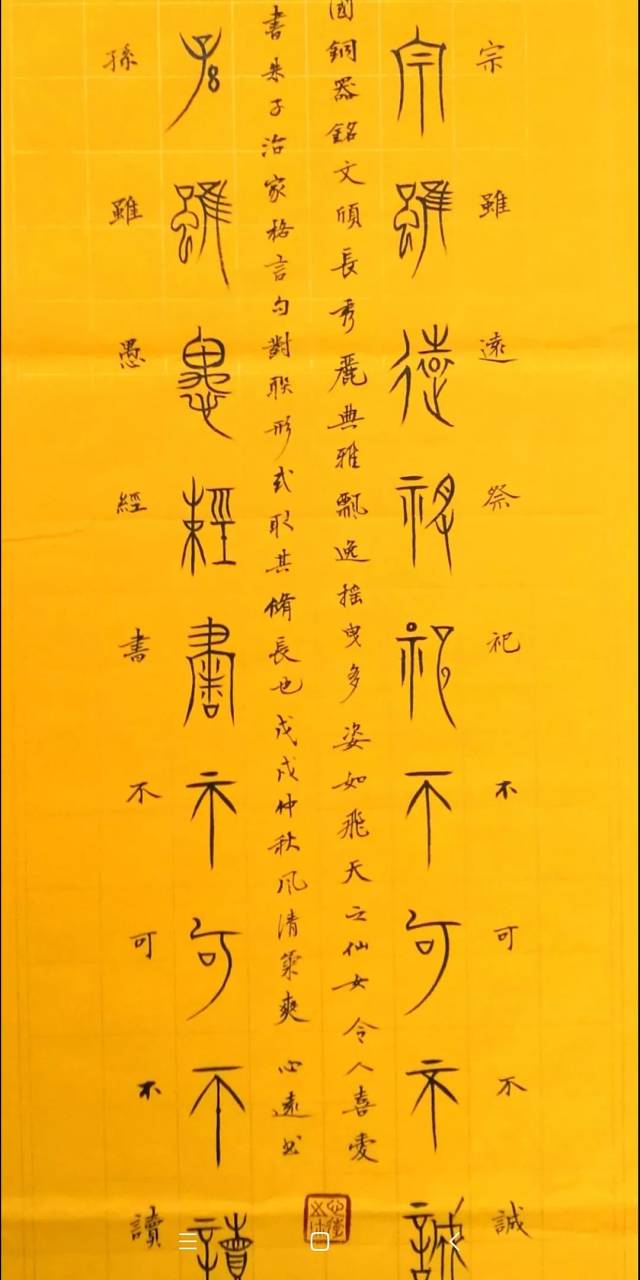 宗雖遠祭祀不可不誠
宗雖遠祭祀不可不誠
國銅器銘文頎長秀麗典雅飄逸摇曳多姿如飛天之仙女令人喜愛
書朱子治家格言句對聯形式取其脩長也戊戌仲秋风清氣爽 心遠书
孫雖愚經書不可不讀
孫雖愚經書不可不讀